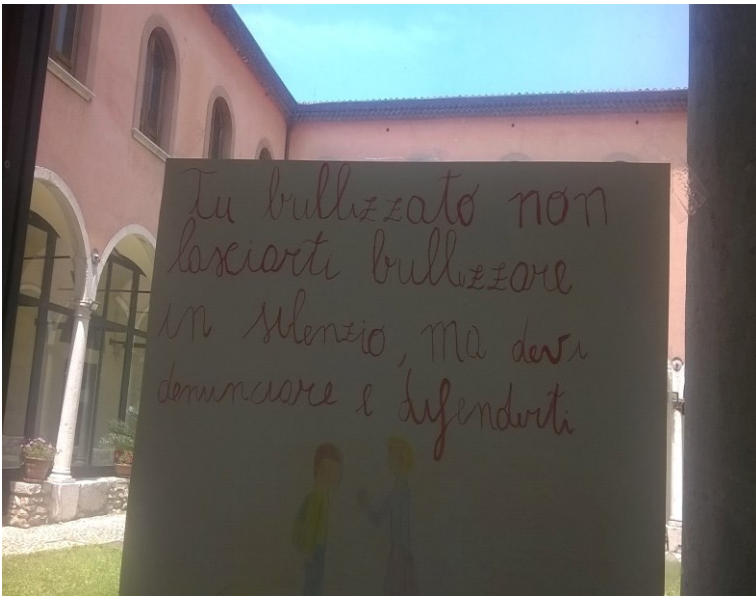 Tu bullizzato non
lasciarti bullizzare
in silenzio, ma devi
denunciare e difenderti